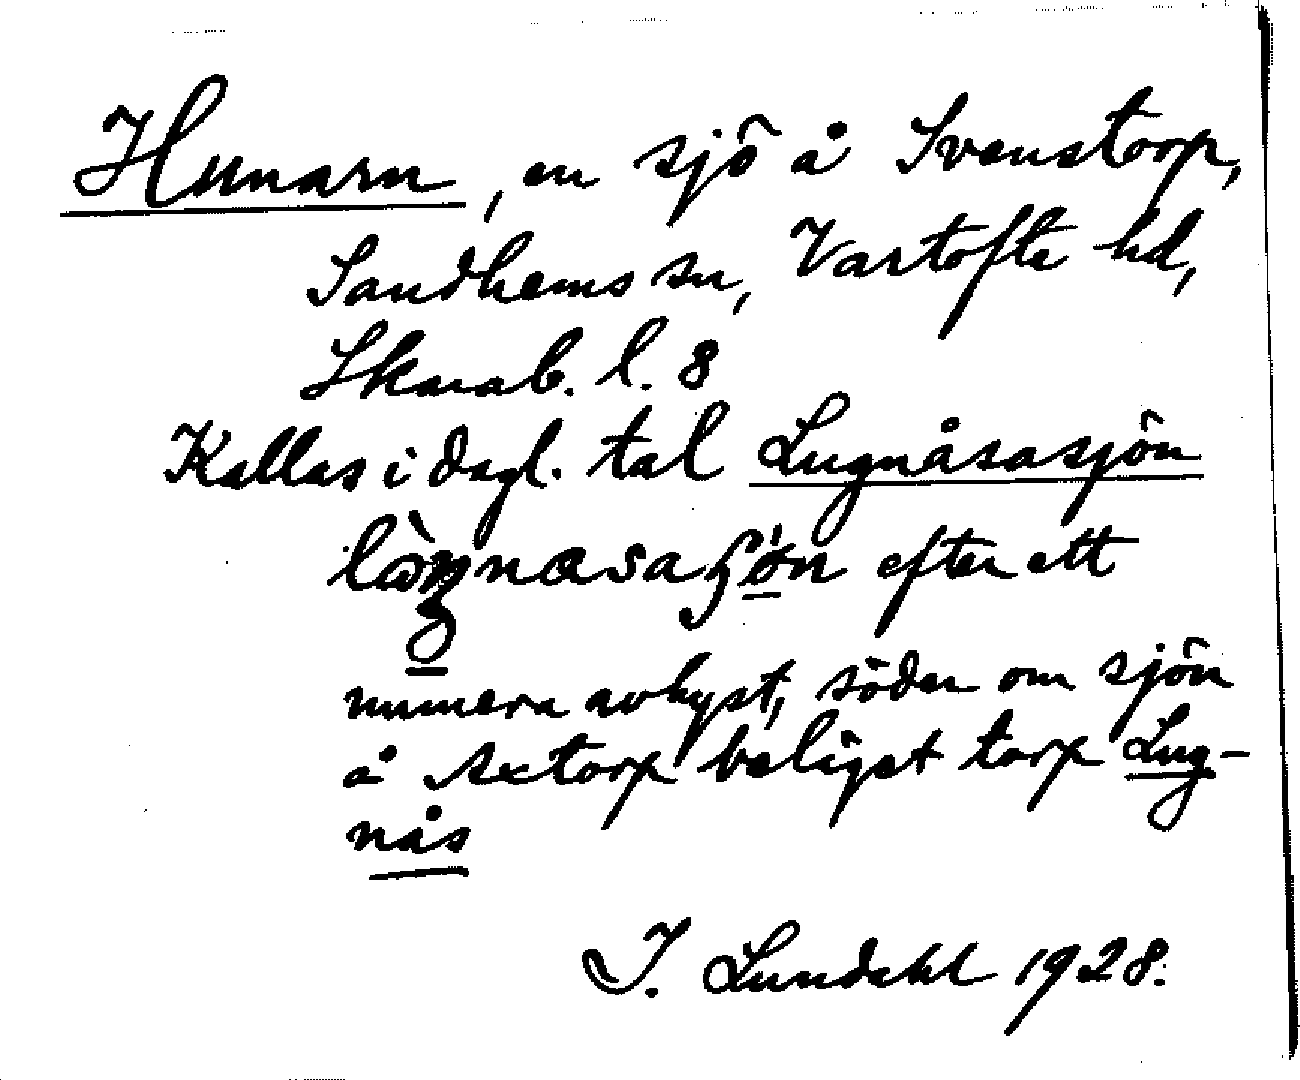 Hunarn, en sjö å Svenstorp,
Sandhems sn, Vartofte hd,
Skarab. l. 8
Kallas i dagl. tal Lugnåsasjön
efter ett
numera avhyst, söder om sjön
å Axtorp beläget torp Lug-
nås
I. Lundahl 1928.